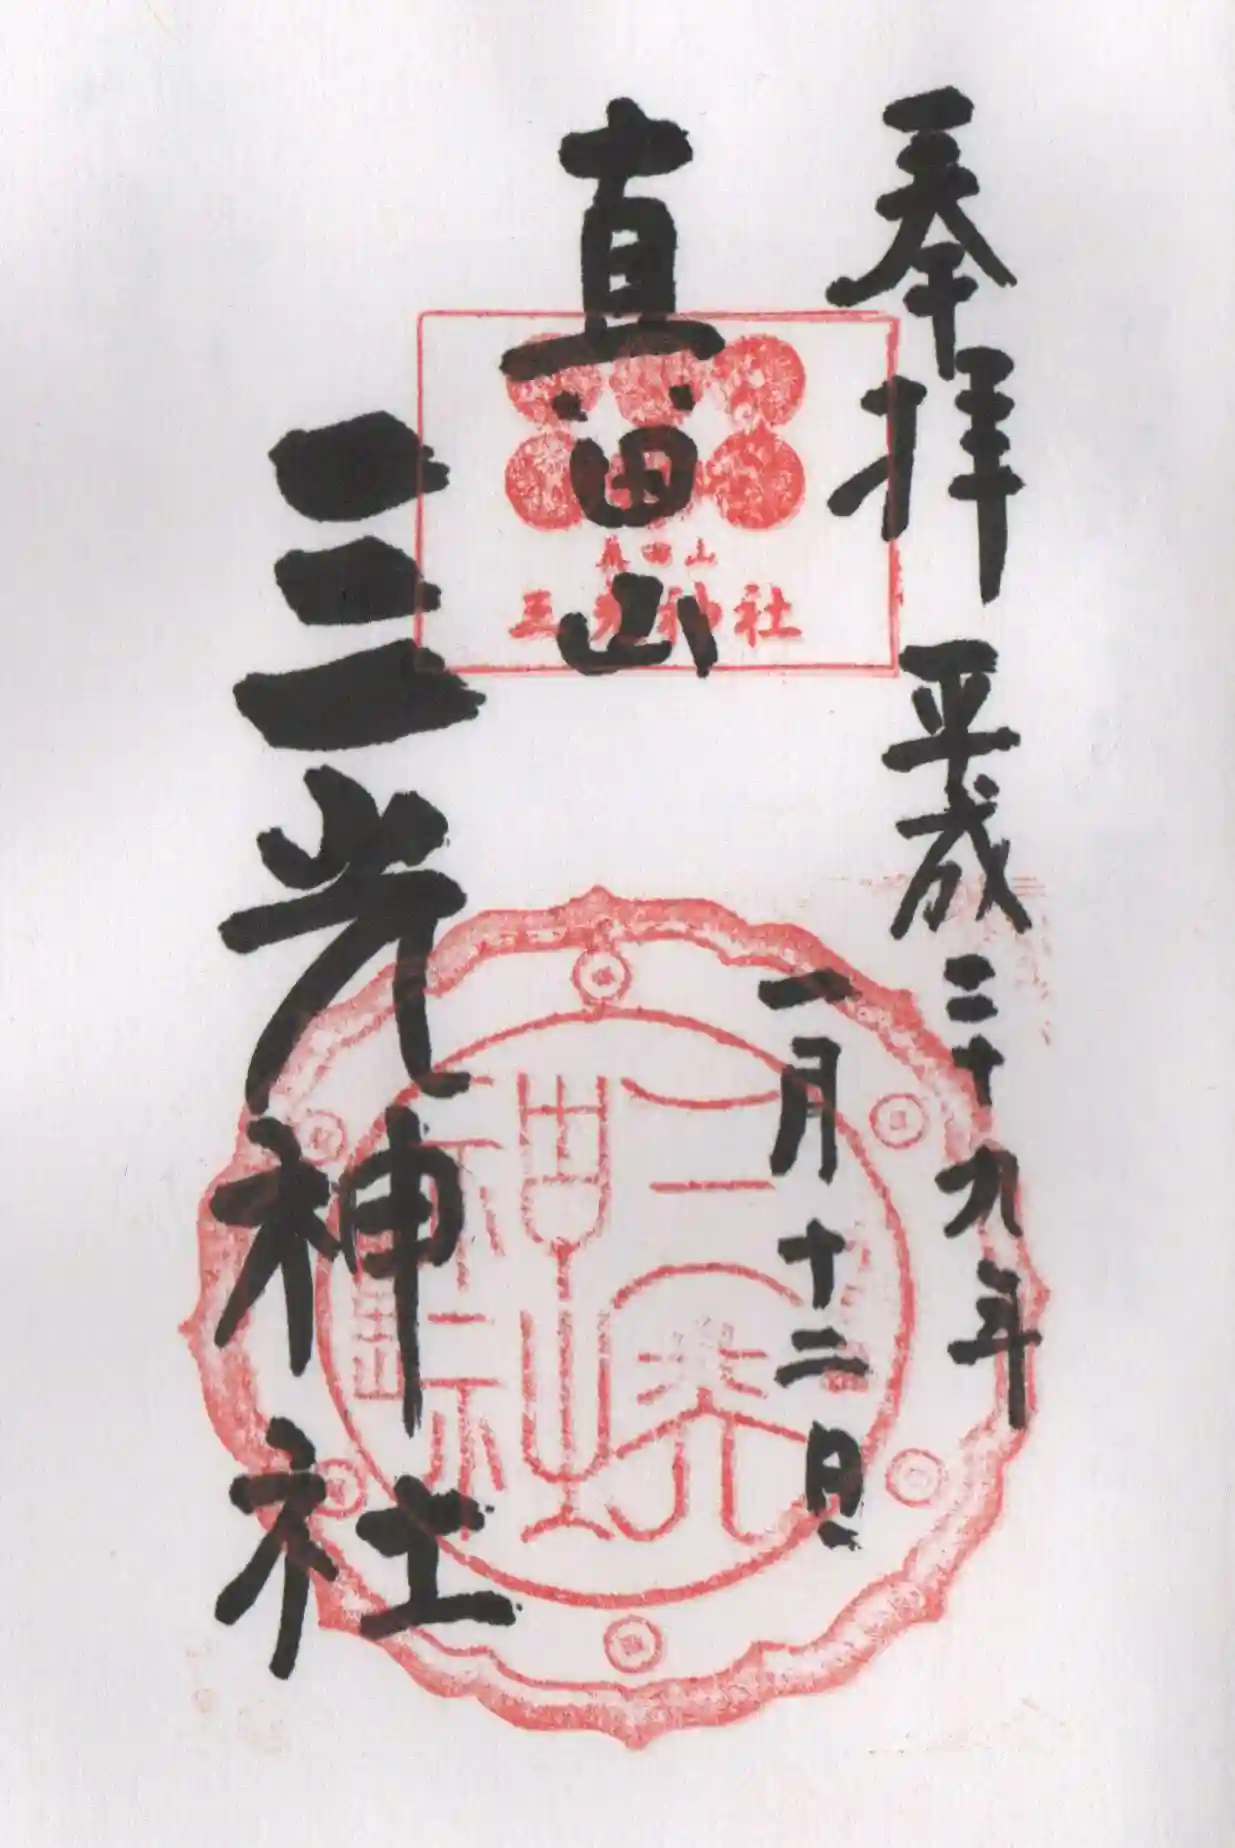 奉拝
平成二十九年
一月十二日
真田山
三光神社
真田山
三光神社
三光神社